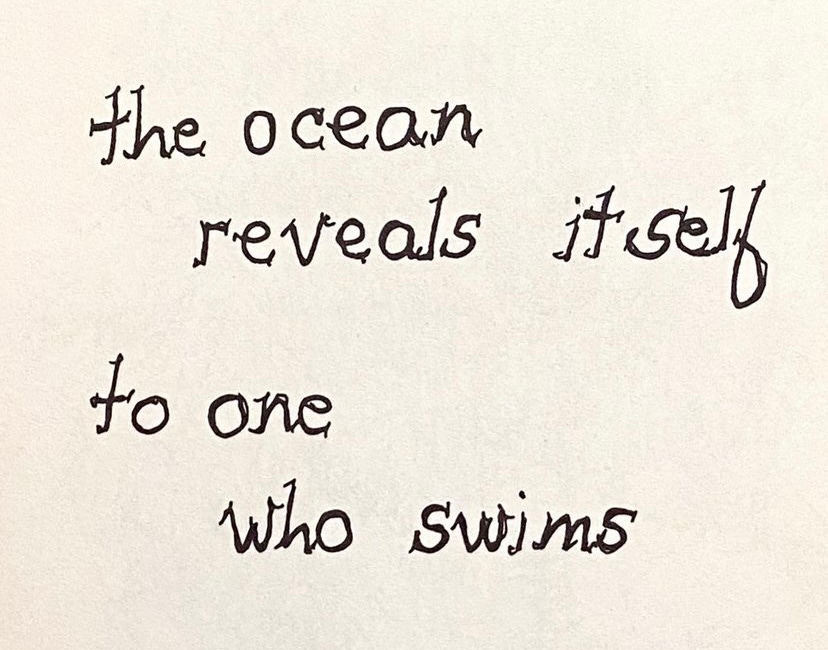 the ocean
reveals itself
to one
who swims